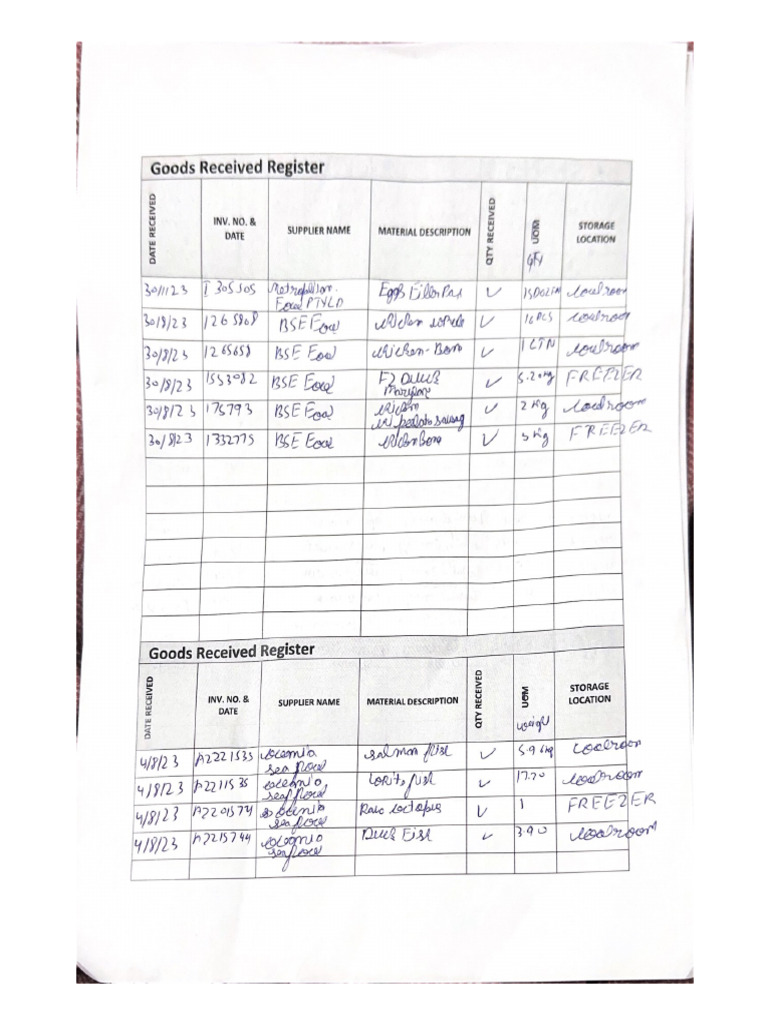 Goods Received Register
DATE RECEIVED INV. NO. & DATE SUPPLIER NAME MATERIAL DESCRIPTION QTY RECEIVED UOM STORAGE LOCATION
qty
30/11/23 I 305505 Eggs ✓ 15DOZEN coolroom
Food PTYLD
30/8/23 1265808 BSE Food chicken whole ✓ 16 PCS coolroom
30/8/23 1265658 BSE Food chicken-Bone ✓ 1 CTN coolroom
30/8/23 1553082 BSE Food FZ Duck ✓ 5.20kg FREEZER
Maryland
30/8/23 175793 BSE Food chicken ✓ 2 Kg coolroom
30/8/23 1332775 BSE Food chicken Bone ✓ 5 Kg FREEZER
Goods Received Register
DATE RECEIVED INV. NO. & DATE SUPPLIER NAME MATERIAL DESCRIPTION QTY RECEIVED UOM STORAGE LOCATION
weight
4/8/23 A2221535 oceania salmon fish ✓ 5.96kg coolroom
sea food
4/8/23 A2211535 oceania fish ✓ 17.20 coolroom
seafood
4/8/23 A2201574 oceania Raw octopus ✓ 1 FREEZER
seafood
4/8/23 A2215744 oceania Fish ✓ 3.90 coolroom
seafood